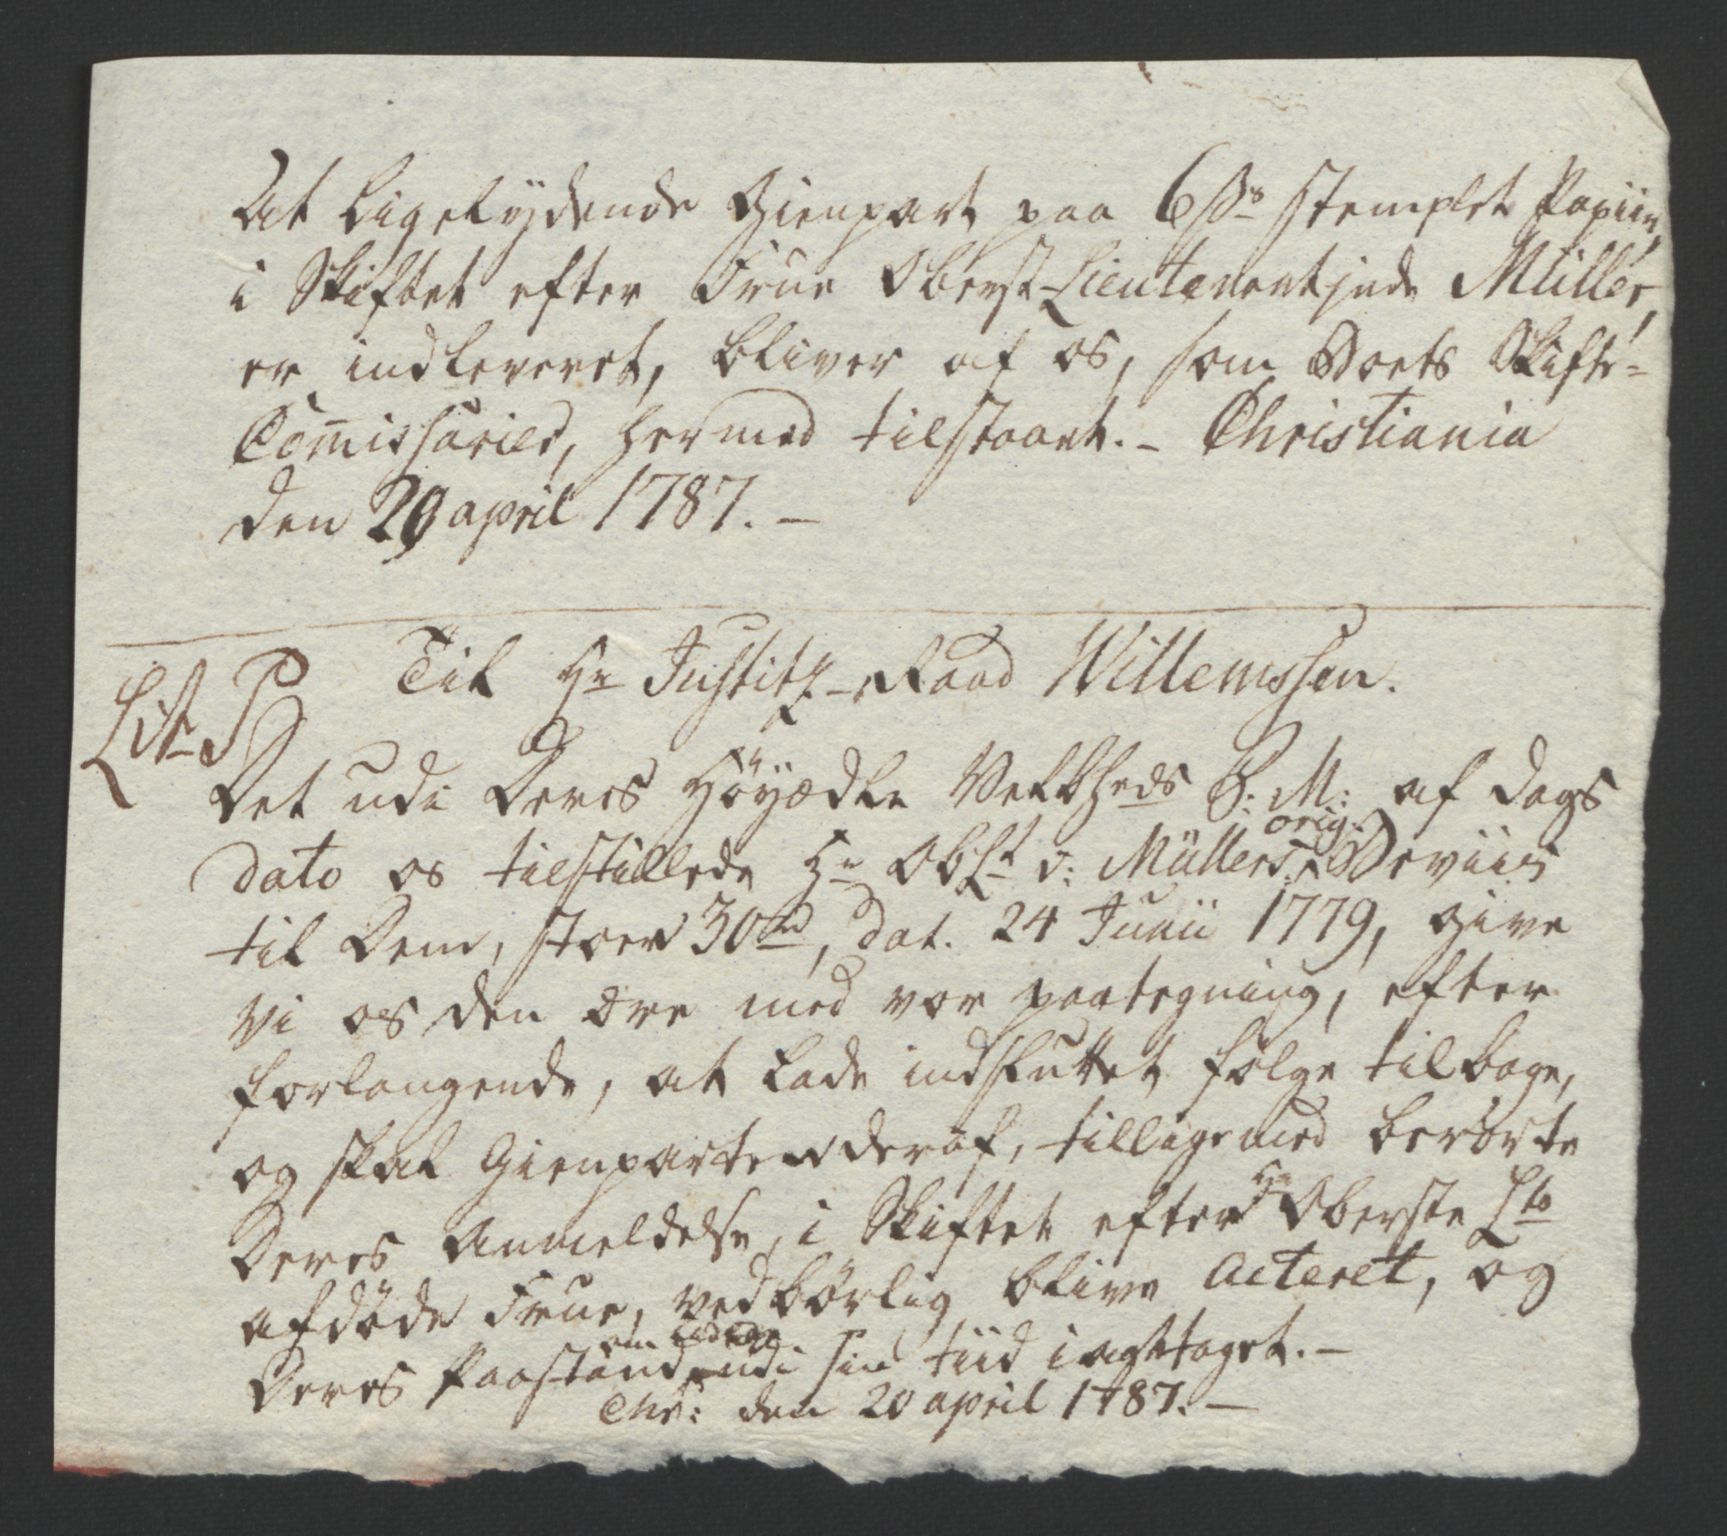 At ligelydende Gienpart paa 6 sk. stemplet Papiir,
i Skiftet efter Frue Oberst-Lieutenantinde Müller,
er indleveret, bliver af os, som Boets Skifte-
Commissarier, hermed tilstaaet. – Christiania
den 20 april 1787. –
Lit. P Til Hr Justitz-Raad Willemssen.
Det udi Deres Höyædle Velbhrds P. M: af Dags
Dato os tilstillede Hr Obst v: Müllers orig. Beviis
til Dem, stoer 30 rd, dat. 24 Junii 1779, give
vi os den ære med vor paategning, efter
forlangende, at lade indsluttet fölge tilbage,
og skal Gienparten deraf, tilligemed berörte
Deres Anmeldelse, i Skiftet efter Hr Oberste Lts
afdöde Frue, vedbörlig blive Acteret, og
Deres Paastand om udi sin tiid iagttaget. –
Chr: den 20 april 1787. –